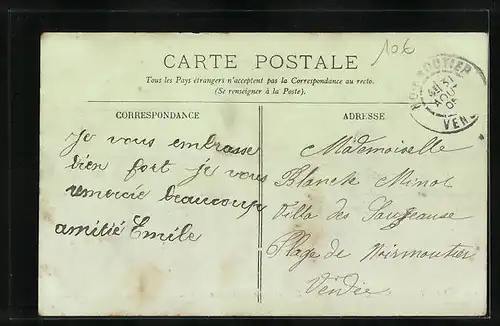 10€
CARTE POSTALE
Tous les Pays étrangers n'acceptent pas la Correspondance au recto.
(Se renseigner à la Poste).
CORRESPONDANCE
Je vous embrasse
bien fort je vous
remercie beaucoup
amitié Emile
ADRESSE
Mademoiselle
Blanche
Villa des
Plage de Noirmoutier
Vendée
NOIRMOUTIER
VEN